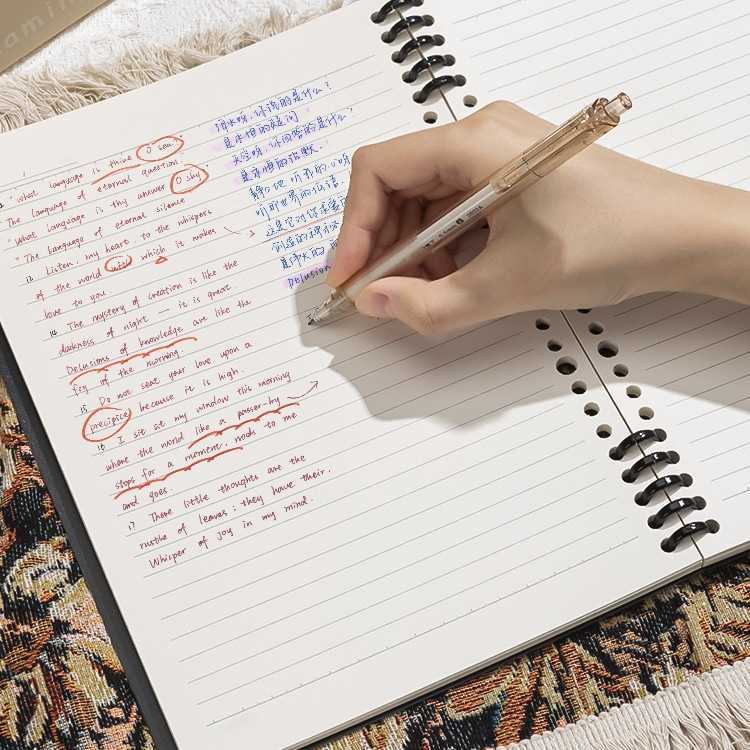 amin
12 "What language is thine O sea.
The language of eternal question.
"What language is thy answer O shy
"The language of eternal silence
13 Listen, my heart to the whispers
of the world with which it makes
love to you
14 The mystery of creation is like the
darkness of night — it is great
Delusions of knowledge are like the
fog of the morning.
15 Do not seat your love upon a
precipice because it is high.
16 I sit at my window this morning
where the world like a passer-by
stops for a moment, nods to me
and goes.
17 There little thoughts are the
rustle of leaves; they have their.
Whisper of joy in my mind.
海水呀,你说的是什么?
是永恒的疑问
天空呀,你回答的是什么?
是永恒的沉默
静静地 听,我的心呀
听那世界的低语
这是它对你求爱
创造的神秘
是伟大的
Delusion